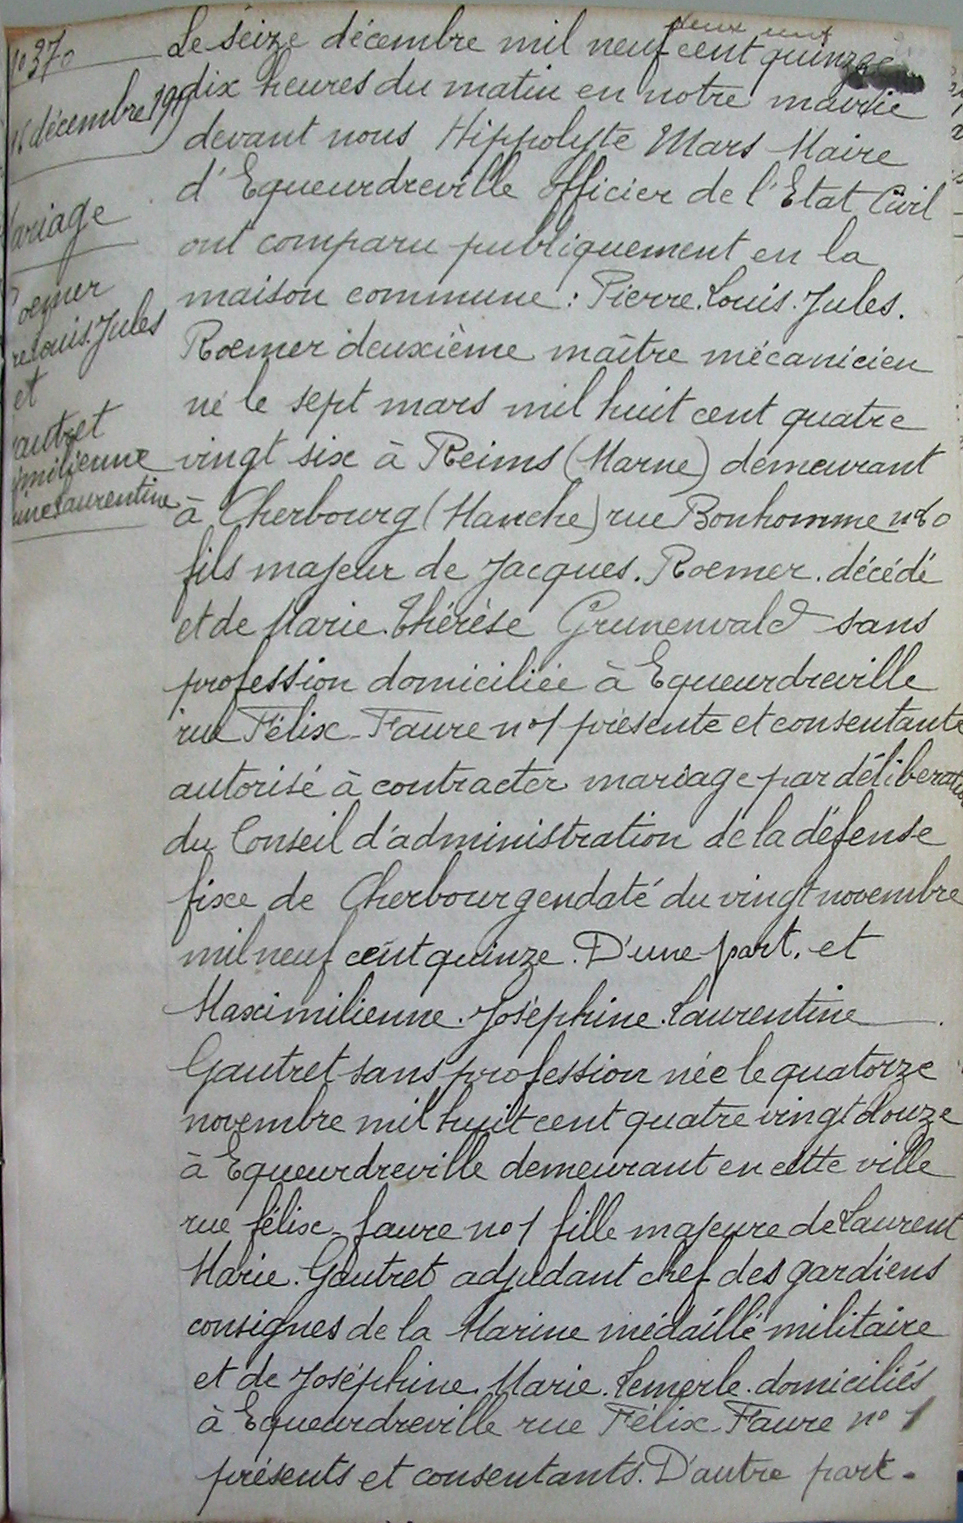 No 370
16 décembre 19
ariage
oemer
re Louis. Jules
et
autret
imilienne
ine Laurentine
Le seize décembre mil neuf cent quinze
dix heures du matin en notre mairie
devant nous Hippolyte Mars Maire
d'Equeurdreville officier de l'Etat Civil
ont comparu publiquement en la
maison commune : Pierre. Louis. Jules.
Roemer deuxième maître mécanicien
né le sept mars mil huit cent quatre
vingt six à Reims (Marne) demeurant
à Cherbourg (Manche) rue Bonhomme
fils majeur de Jacques. Roemer. décédé
et de Marie. Thérèse Grunenwald sans
profession domiciliée à Equeurdreville
rue Félix-Faure no 1 présente et consentante
autorisé à contracter mariage par déliberation
du Conseil d'administration de la défense
fixe de Cherbourg en daté du vingt novembre
mil neuf cent quinze. D'une part. et
Maximilienne. Joséphine. Laurentine
Gautret sans profession née le quatorze
novembre mil huit cent quatre vingt douze
à Equeurdreville demeurant en cette ville
rue félix-faure no 1 fille majeure de Laurent
Marie. Gautret adjudant chef des gardiens
consignes de la Marine médaillé militaire
et de Joséphine. Marie. Lemerle. domiciliés
à Equeurdreville rue Félix-Faure no 1
présents et consentants. D'autre part.